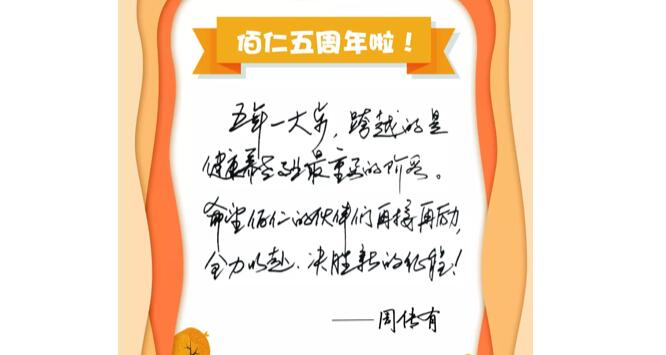 佰仁五周年啦！
五年一大步，跨越的是
健康养老业最重要的阶段。
希望佰仁的伙伴们再接再励，
全力以赴、决胜新的征程！
——周传有